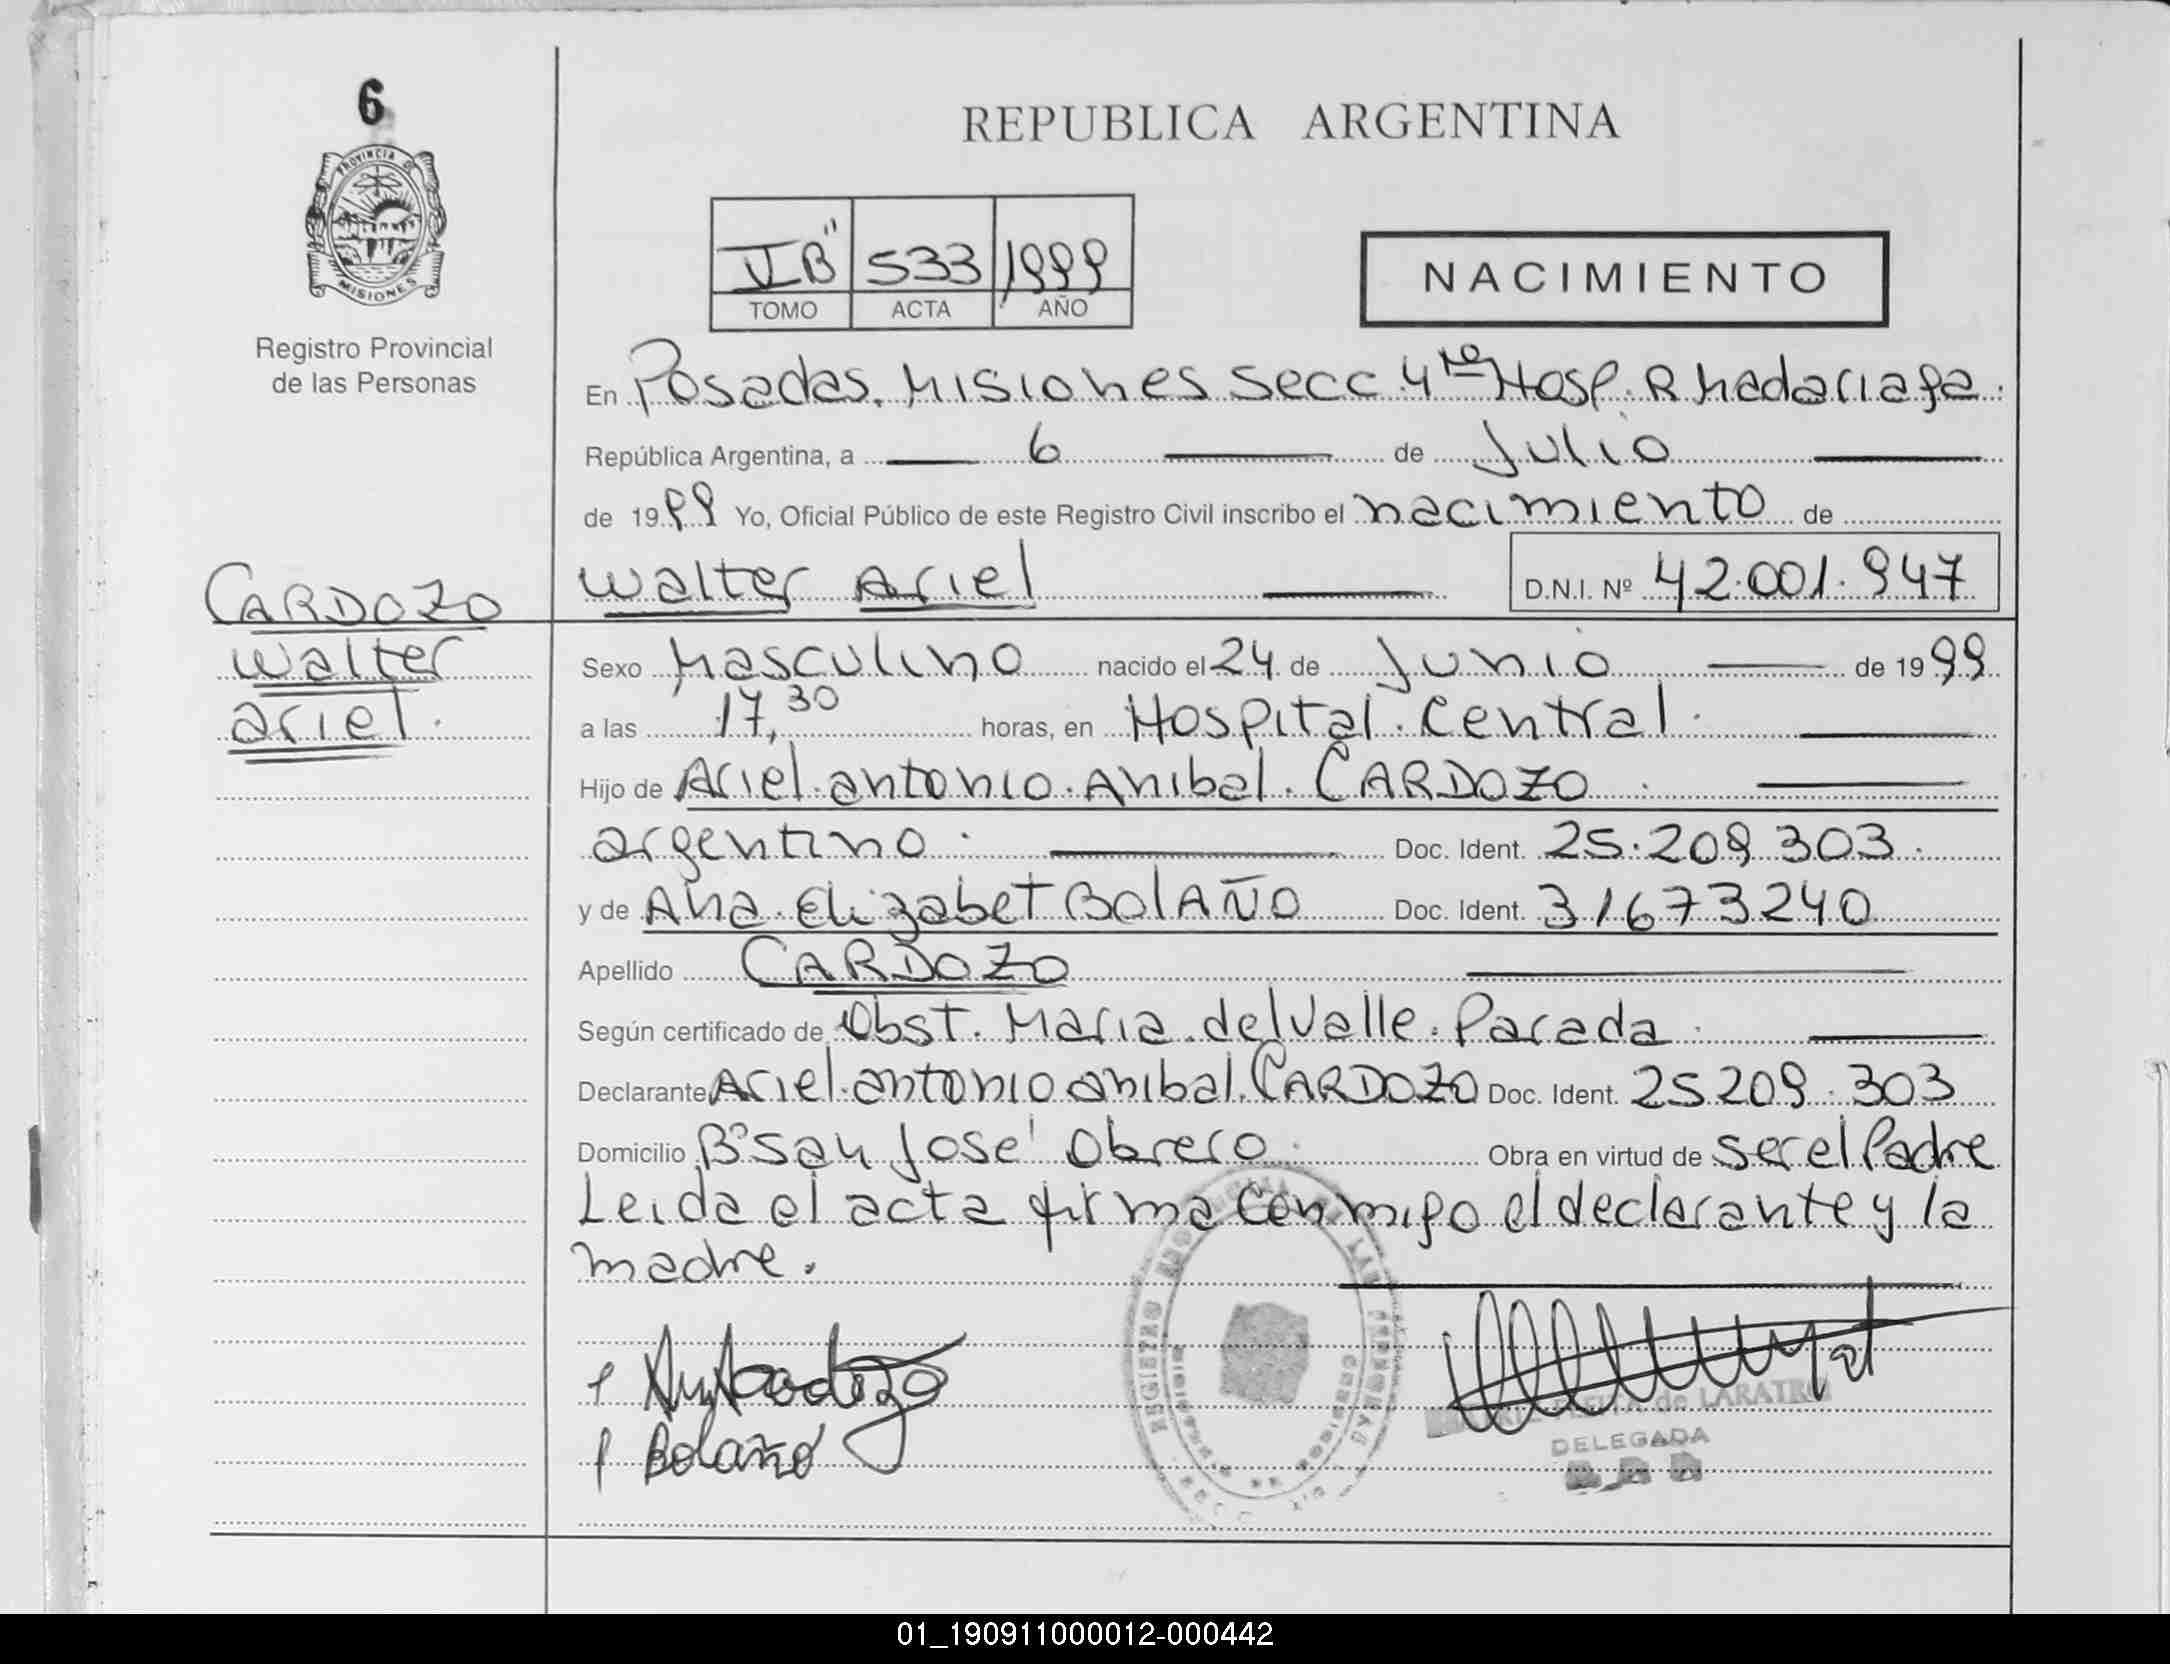 6
PROVINCIA DE
MISIONES
Registro Provincial
de las Personas
CARDOZO
Walter
Ariel.
REPUBLICA ARGENTINA
VI B" 533 1999
TOMO ACTA AÑO
NACIMIENTO
En Posadas, Misiones Secc. 4ta Hosp. R Madariaga.
República Argentina, a 6 de Julio
de 1999 Yo, Oficial Público de este Registro Civil inscribo el nacimiento de
Walter Ariel D.N.I. Nº 42.001.947
Sexo Masculino nacido el 24 de Junio de 1999
a las 17,30 horas, en Hospital Central.
Hijo de Ariel Antonio Anibal CARDOZO
argentino. Doc. Ident. 25.209.303.
y de Ana Elizabet BolAÑO Doc. Ident. 31673240
Apellido CARDOZO
Según certificado de Obst. Maria del Valle Parada.
Declarante Ariel antonio anibal CARDOZO Doc. Ident. 25.209.303
Domicilio Bº San José Obrero. Obra en virtud de ser el Padre
Leida el acta firma conmigo el declarante y la
madre.
Bolaño
de LARATRO
DELEGADA
REGISTRO
01_190911000012-000442